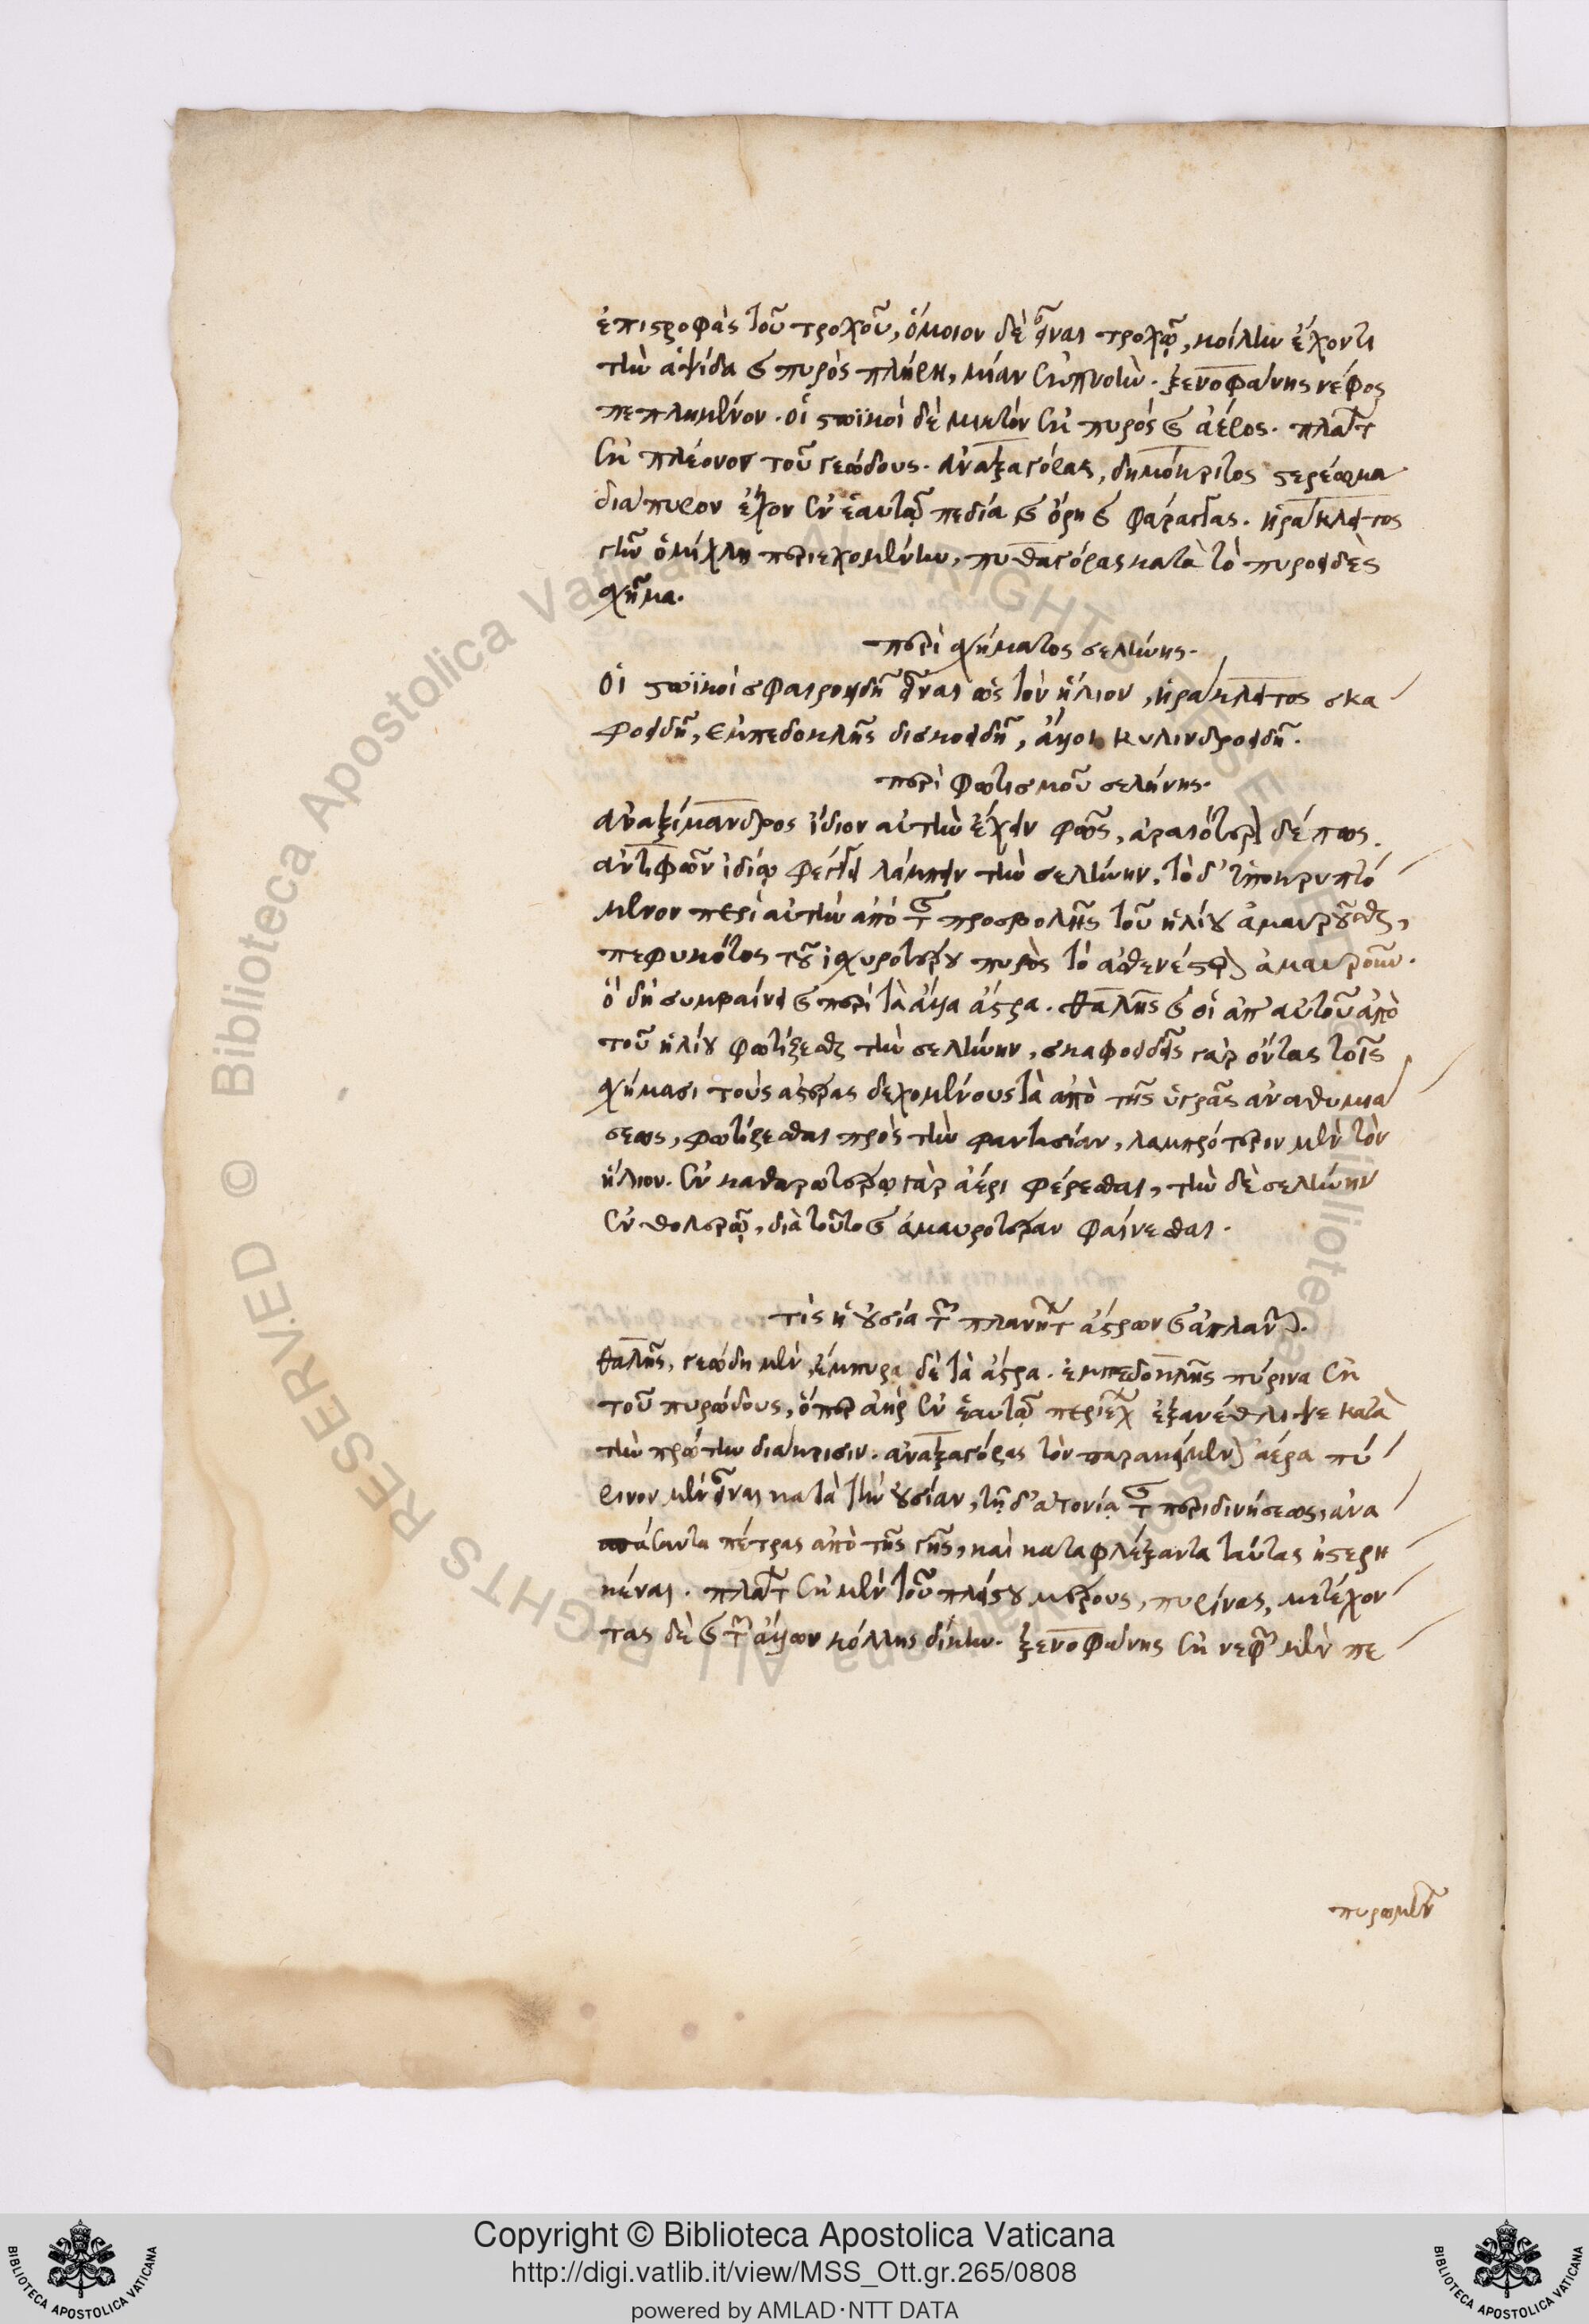 ἐπιστροφὰς τοῦ τροχοῦ, ὅμοιον δὲ εἶναι τροχῷ, κοίλην ἔχοντι
τὴν ἁψίδα καὶ πυρὸς πλήρη, μίαν ἐκπνοὴν. ξενοφάνης νέφος
πεπλημένον. οἱ στωϊκοὶ δὲ μικτὸν ἐκ πυρός καὶ ἀέρος. πλάτ
ἐκ πλέονος τοῦ γεώδους. ἀναξαγόρας, δημόκριτος στερέωμα
διάπυρον ἔχον ἐν ἑαυτῷ πεδία καὶ ὄρη καὶ φάραγγας. ἡράκλειτος
γῆν ὁμίχλη περιεχομένην, πυθαγόρας κατὰ τὸ πυροειδὲς
σχῆμα.
περὶ σχήματος σελήνης.
Οἱ στωϊκοὶ σφαιροειδῆ εἶναι ὡς τὸν ἥλιον, ἡράκλειτος σκα
φοειδῆ, ἐμπεδοκλῆς δισκοειδῆ, ἄλλοι κυλινδροειδῆ.
περὶ φωτισμοῦ σελήνης.
ἀναξίμανδρος ἴδιον αὐτὴν ἔχειν φῶς, ἀραιότερον δέ πως.
ἀντιφῶν ἰδίῳ φέγγει λάμπειν τὴν σελήνην, τὸ δ' ἀποκρυπτό
μενον περὶ αὐτὴν ἀπὸ τῆς προσβολῆς τοῦ ἡλίου ἀμαυροῦσθαι,
πεφυκότος τοῦ ἰσχυροτέρου πυρὸς τὸ ἀσθενέστερον ἀμαυροῦν.
ὃ δὴ συμβαίνει καὶ περὶ τὰ ἄλλα ἄστρα. θαλῆς καὶ οἱ ἀπ' αὐτοῦ ἀπὸ
τοῦ ἡλίου φωτίζεσθαι τὴν σελήνην, σκαφοειδεῖς γὰρ ὄντας τοῖς
σχήμασι τοὺς ἀστέρας δεχομένους τὰ ἀπὸ τῆς ὑγρᾶς ἀναθυμιά
σεως, φωτίζεσθαι πρὸς τὴν φαντασίαν, λαμπρότερον μὲν τὸν
ἥλιον. ἐν καθαρωτέρῳ γὰρ ἀέρι φέρεσθαι, τὴν δὲ σελήνην
ἐν θολερῷ, διὰ τοῦτο καὶ ἀμαυροτέραν φαίνεσθαι.
τὶς ἡ οὐσία τῶν πλανητῶν ἄστρων καὶ ἀπλανῶν.
θαλῆς, γεώδη μὲν, ἔμπυρα δὲ τὰ ἄστρα. ἐμπεδοκλῆς πύρινα ἐκ
τοῦ πυρώδους, ὅπερ ἀὴρ ἐν ἑαυτῷ περιέχων ἐξανέθλιψε κατὰ
τὴν πρώτην διάκρισιν. ἀναξαγόρας τὸν παρακείμενον ἀέρα πύ
ρινον μὲν εἶναι κατὰ τὴν οὐσίαν, τῇ δ' ἀτονίᾳ τῆς περιδινήσεως, ἀνα
πάσαντα πέτρας ἀπὸ τῆς γῆς, καὶ καταφλέξαντα ταύτας ἠστερη
κέναι. πλάτ ἐκ μὲν τοῦ πλείστου μέρους, πυρίνας, μετέχον
τας δὲ καὶ τῶν ἄλλων κόλλης δίκην. ξενοφάνης ἐκ νεφῶν μὲν πε
πυρωμέν